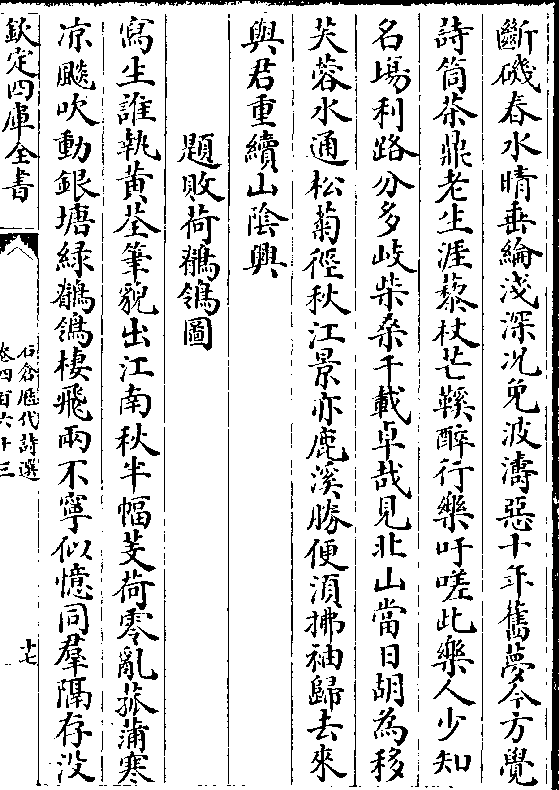 斷磯春水晴垂綸淺深况免波濤惡十年舊夢今方覺
詩筒茶鼎老生涯藜杖芒鞵醉行樂吁嗟此樂人少知
名場利路分多岐柴桑千載卓哉見北山當日胡為移
芙蓉水通松菊徑秋江景亦鹿溪勝便須拂袖歸去來
與君重續山陰興
題敗荷鶺鴒圖
寫生誰執黄荃筆貌出江南秋半幅芰荷零亂菰蒲寒
凉颷吹動銀塘緑鶺鴒棲飛兩不寧似憶同羣隔存没
欽定四庫全書
石倉歷代詩選
卷四百六十三
十七